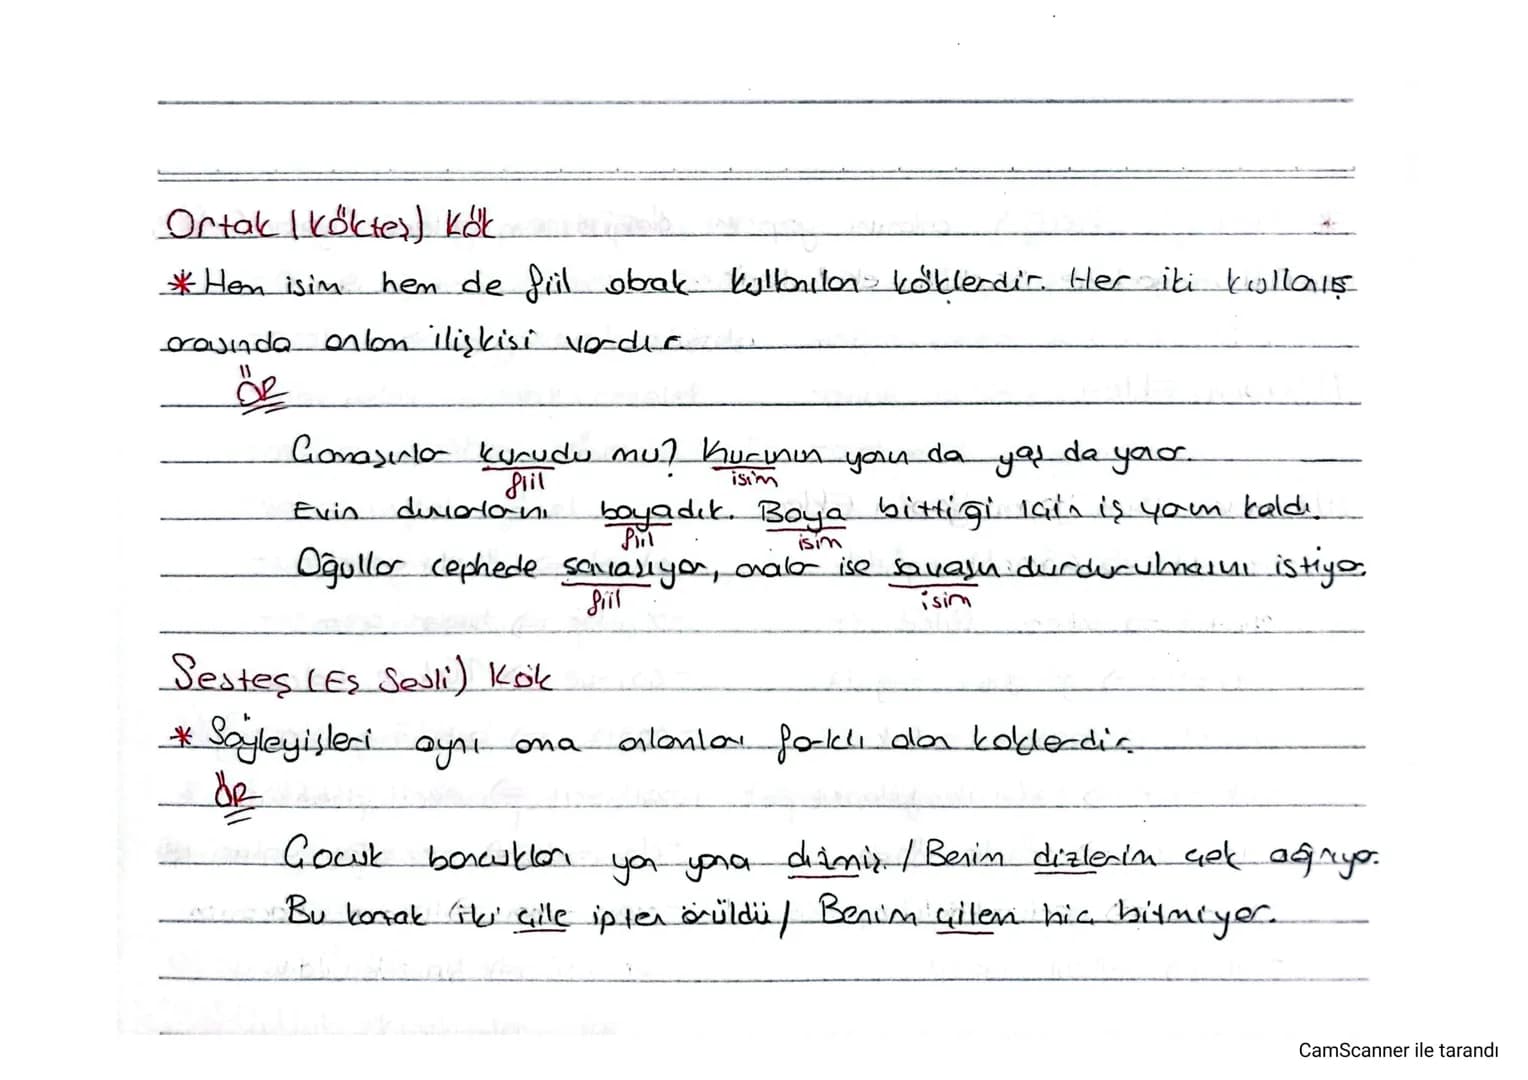 Ortak (Kökteş) Kök
* Hem isim hem de fiil olarak kullanılan köklerdir. Her iki kullanış
arasında anlam ilişkisi vardır.
ÖR
Çamaşırlar kurudu mu? Kurunun yanın da yaş da yanar.
fiil isim
Evin duvarlarını boyadık. Boya bittiği için iş yarım kaldı.
fiil isim
Oğullar cephede savaşıyor, analar ise savaşın durdurulmasını istiyor.
fiil isim
Sesteş (Eş Sesli) Kök
* Söyleyişleri aynı ama anlamları farklı olan köklerdir.
ÖR
Çocuk boncukları yan yana dizmiş. / Benim dizlerim çok ağrıyor.
Bu kazak iki çile ipten örüldü / Benim çilem hiç bitmiyor.
CamScanner ile tarandı